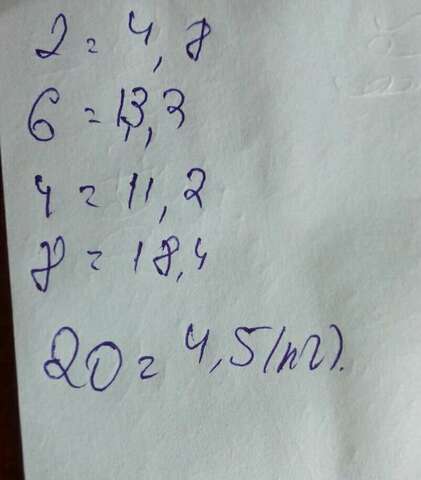 2 = 4,8
6 = 13,3
4 = 11,2
8 = 18,4
20 = 4,5 (пг).